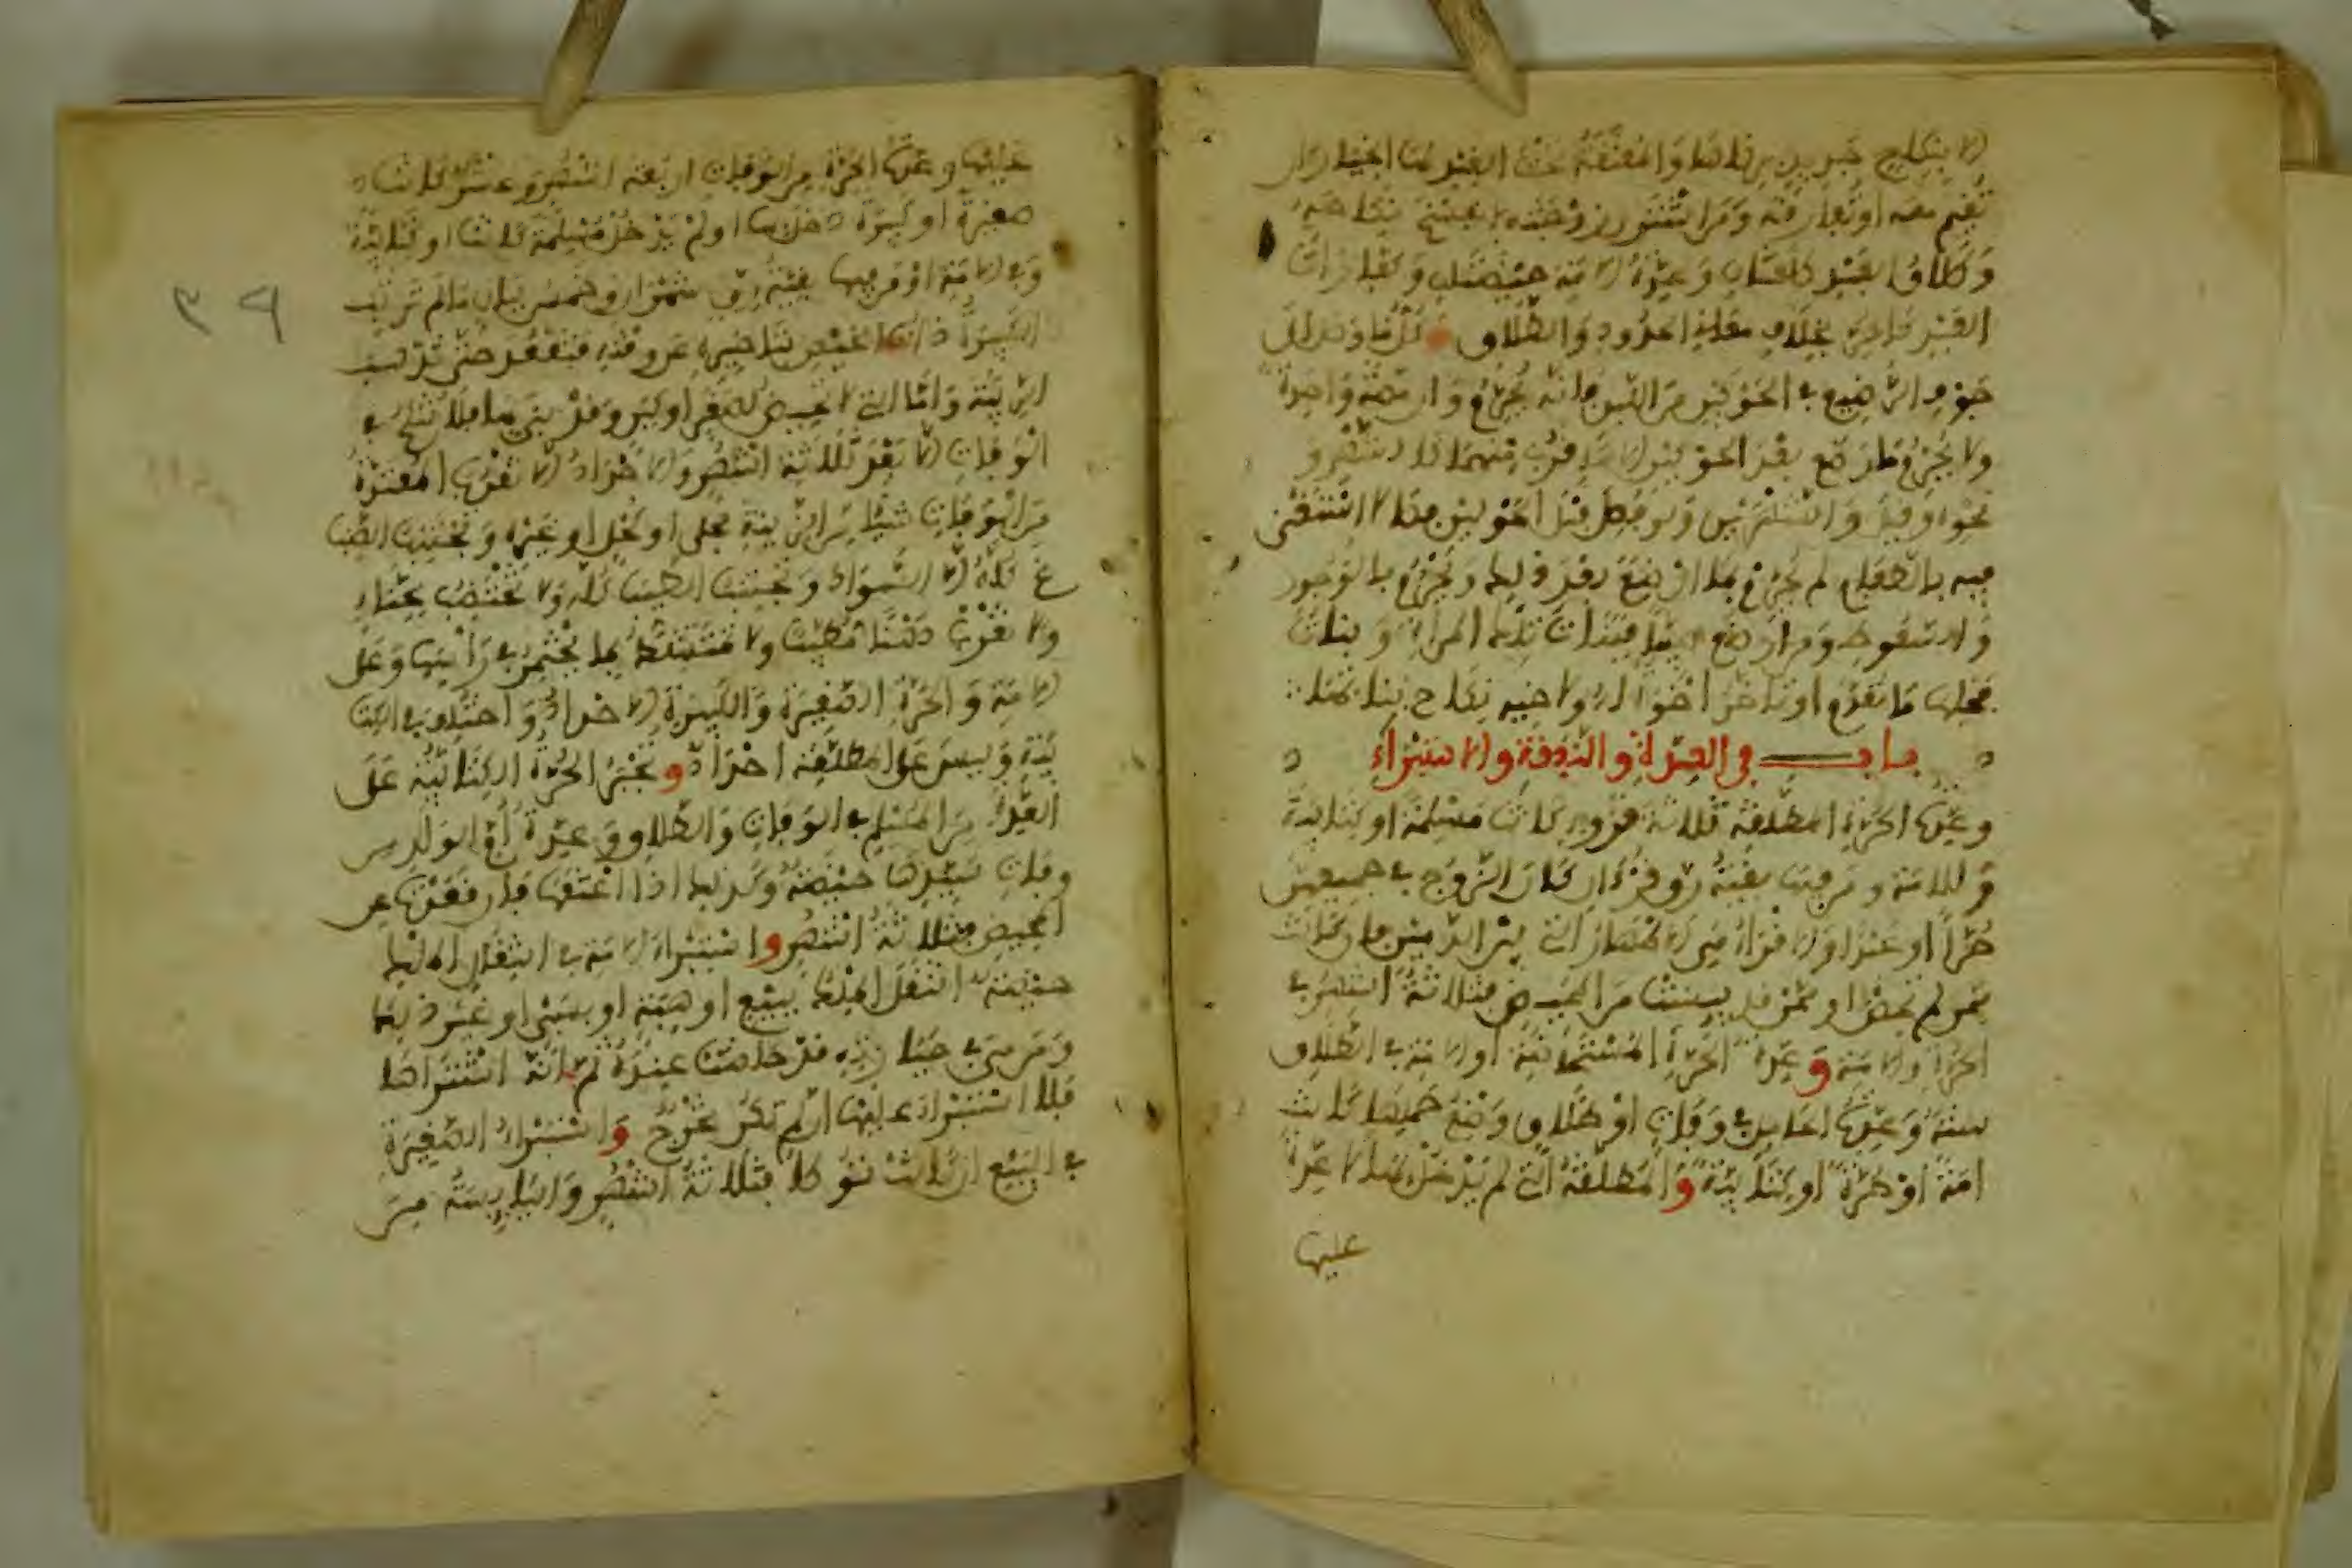 إلا بنكاح جديد بن شا والمعتقة تحت العبد لها الخيار أن
تقيم معه أو تفارقه ومن اشترى زوجته انفسخ نكاحه
وطلاق العبد طلقتان وعدة الأمة حيضتان وكفارات
العبد كالحر بخلاف معاني الحدود والطلاق وكل ما وصل إلى
جوف الرضيع في الحولين من اللبن فإنه يحرم وإن مصة واحدة
ولا يحرم ما أرضع بعد الحولين إلا ما قرب منهما كالشهر و
نحوه وقيل والشهرين ولو فصل قبل الحولين فصالا استغنى
فيه بالطعام لم يحرم ما ارضع بعد ذلك ويحرم بالوجور
والسعوط ومن أرضع صبيا فبنات تلك المرأة وبنات
فحلها ما تقدم أو تأخر إخوة له ولأخيه نكاح بناتها
باب في العدة والنفقة والاستبراء
وعدة الحرة المطلقة ثلاثة قروء كانت مسلمة أو كتابية
وللأمة ومن فيها بقية رق قرءان كان الزوج في جميعهن
حرا أو عبدا والاقراء هي الاطهار التي بين الدمين فإن كانت
ممن لم تحض أو ممن قد يئست من المحيض فثلاثة أشهر في
الحرة والأمة وعدة الحرة المستحاضة أو الأمة في الطلاق
سنة وعدة الحامل في وفاة أو طلاق وضع حملها كانت
أمة أو حرة أو كتابية والمطلقة التي لم يدخل بها لا عدة
عليها
عليها وعدة الحرة من الوفاة أربعة أشهر وعشر كانت
صغيرة أو كبيرة دخل بها أو لم يدخل مسلمة كانت أو كتابية
وفي الأمة أو من فيها بقية رق شهران وخمس ليال ما لم ترتب
الكبيرة ذات الحيض بتأخيره عن وقته فتقعد حتى تذهب
الريبة وأما التي لا تحيض لصغر أو كبر وقد بنى بها فلا تنكح في
الوفاة إلا بعد ثلاثة أشهر والإحداد ألا تقرب المعتدة
من الوفاة شيئا من الزينة بحلي أو كحل أو غيره وتجتنب الصبا
غ كله إلا السواد وتجتنب الطيب كله ولا تختضب بحناء
ولا تقرب دهنا مطيبا ولا تمتشط بما يختمر في رأسها وعلى
الأمة والحرة الصغيرة والكبيرة الإحداد واختلف في الكتا
بية وليس على المطلقة إحداد وتجبر الحرة الكتابية على
العدة من المسلم في الوفاة والطلاق وعدة أم الولد من
وفاة سيدها حيضة وكذلك إذا أعتقها فإن قعدت عن
المحيض فثلاثة أشهر واستبراء الأمة في انتقال الملك
حيضة انتقل الملك ببيع أو هبة أو بسبي أو غير ذلك
ومن هي في حيازته قد حاضت عنده ثم إنه اشتراها
فلا استبراء عليها إن لم تكن تخرج واستبراء الصغيرة
في البيع إن كانت توطأ بثلاثة أشهر واليائسة من
٣٩